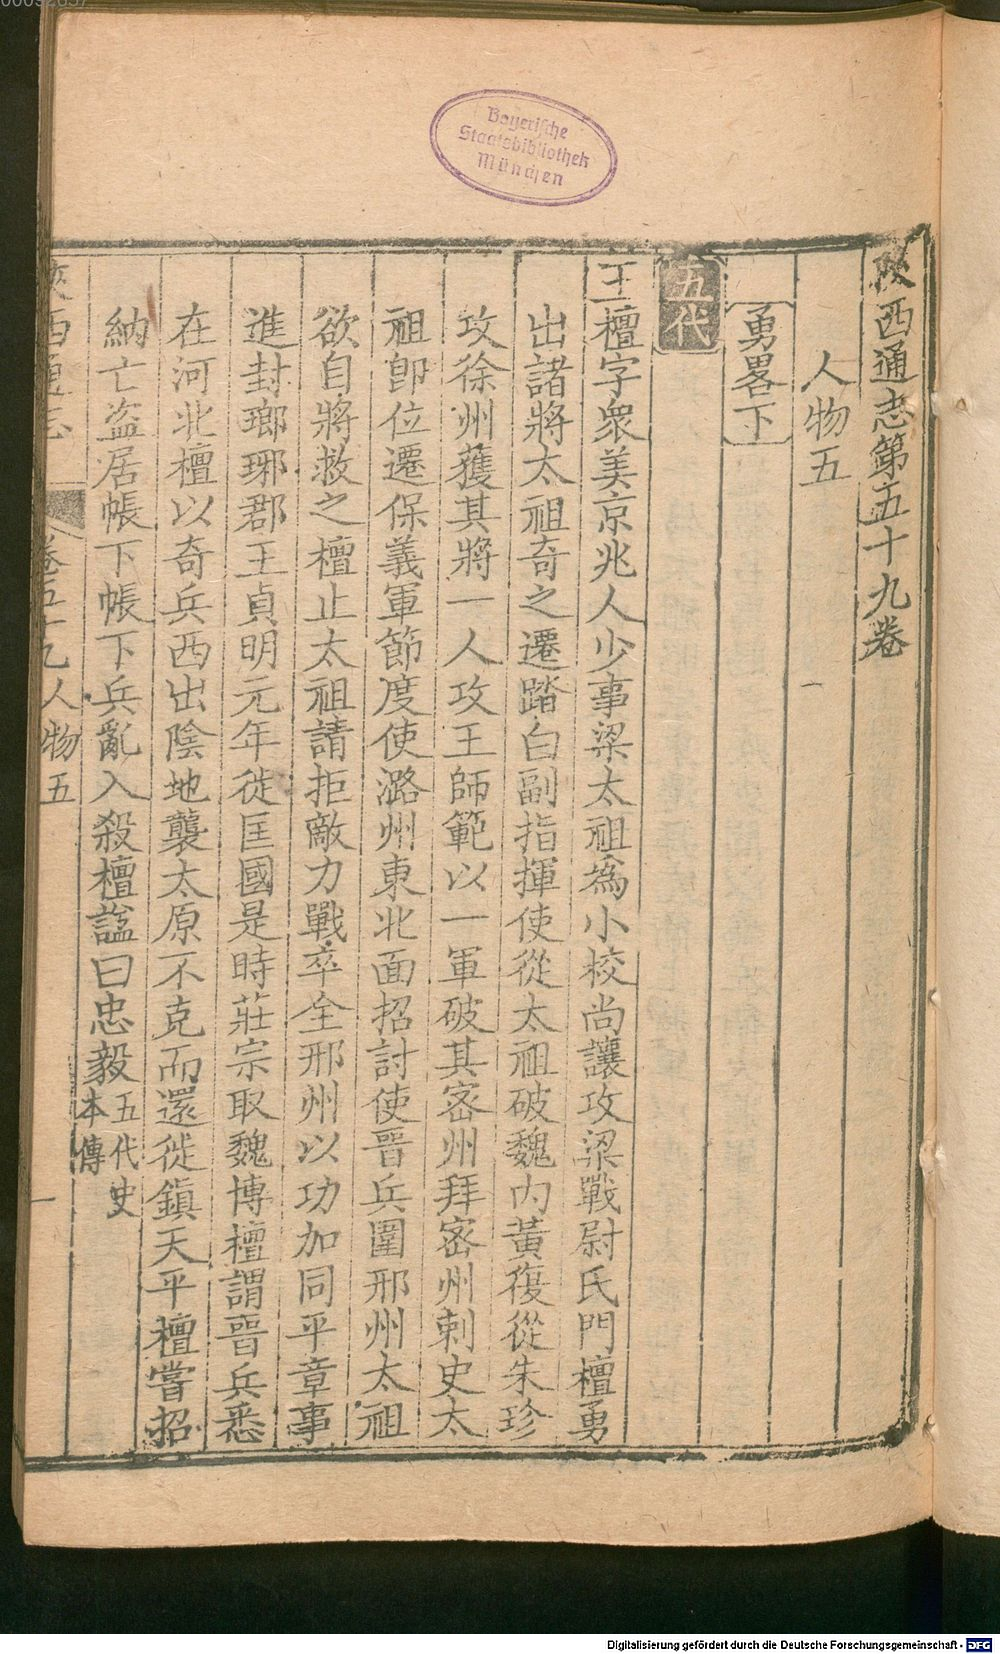 00092637
Bayerische
Staatsbibliothek
München
陜西通志第五十九卷
人物五
勇畧下
五代
王檀字衆美京兆人少事梁太祖爲小校尚讓攻梁戰尉氏門檀勇
出諸將太祖奇之遷踏白副指揮使從太祖破魏内黃復從朱珍
攻徐州獲其將一人攻王師範以一軍破其宻州拜宻州刺史太
祖卽位遷保義軍節度使潞州東北面招討使晉兵圍邢州太祖
欲自將救之檀止太祖請拒敵力戰卒全邢州以功加同平章事
進封瑯琊郡王貞明元年徙匡國是時莊宗取魏博檀謂晉兵悉
在河北檀以奇兵西出陰地襲太原不克而還徙鎮天平檀嘗招
納亡盜居帳下帳下兵亂入殺檀諡曰忠毅五代史本傳
陜西通志 卷五十九人物五 一
Digitalisierung gefördert durch die Deutsche Forschungsgemeinschaft - DFG